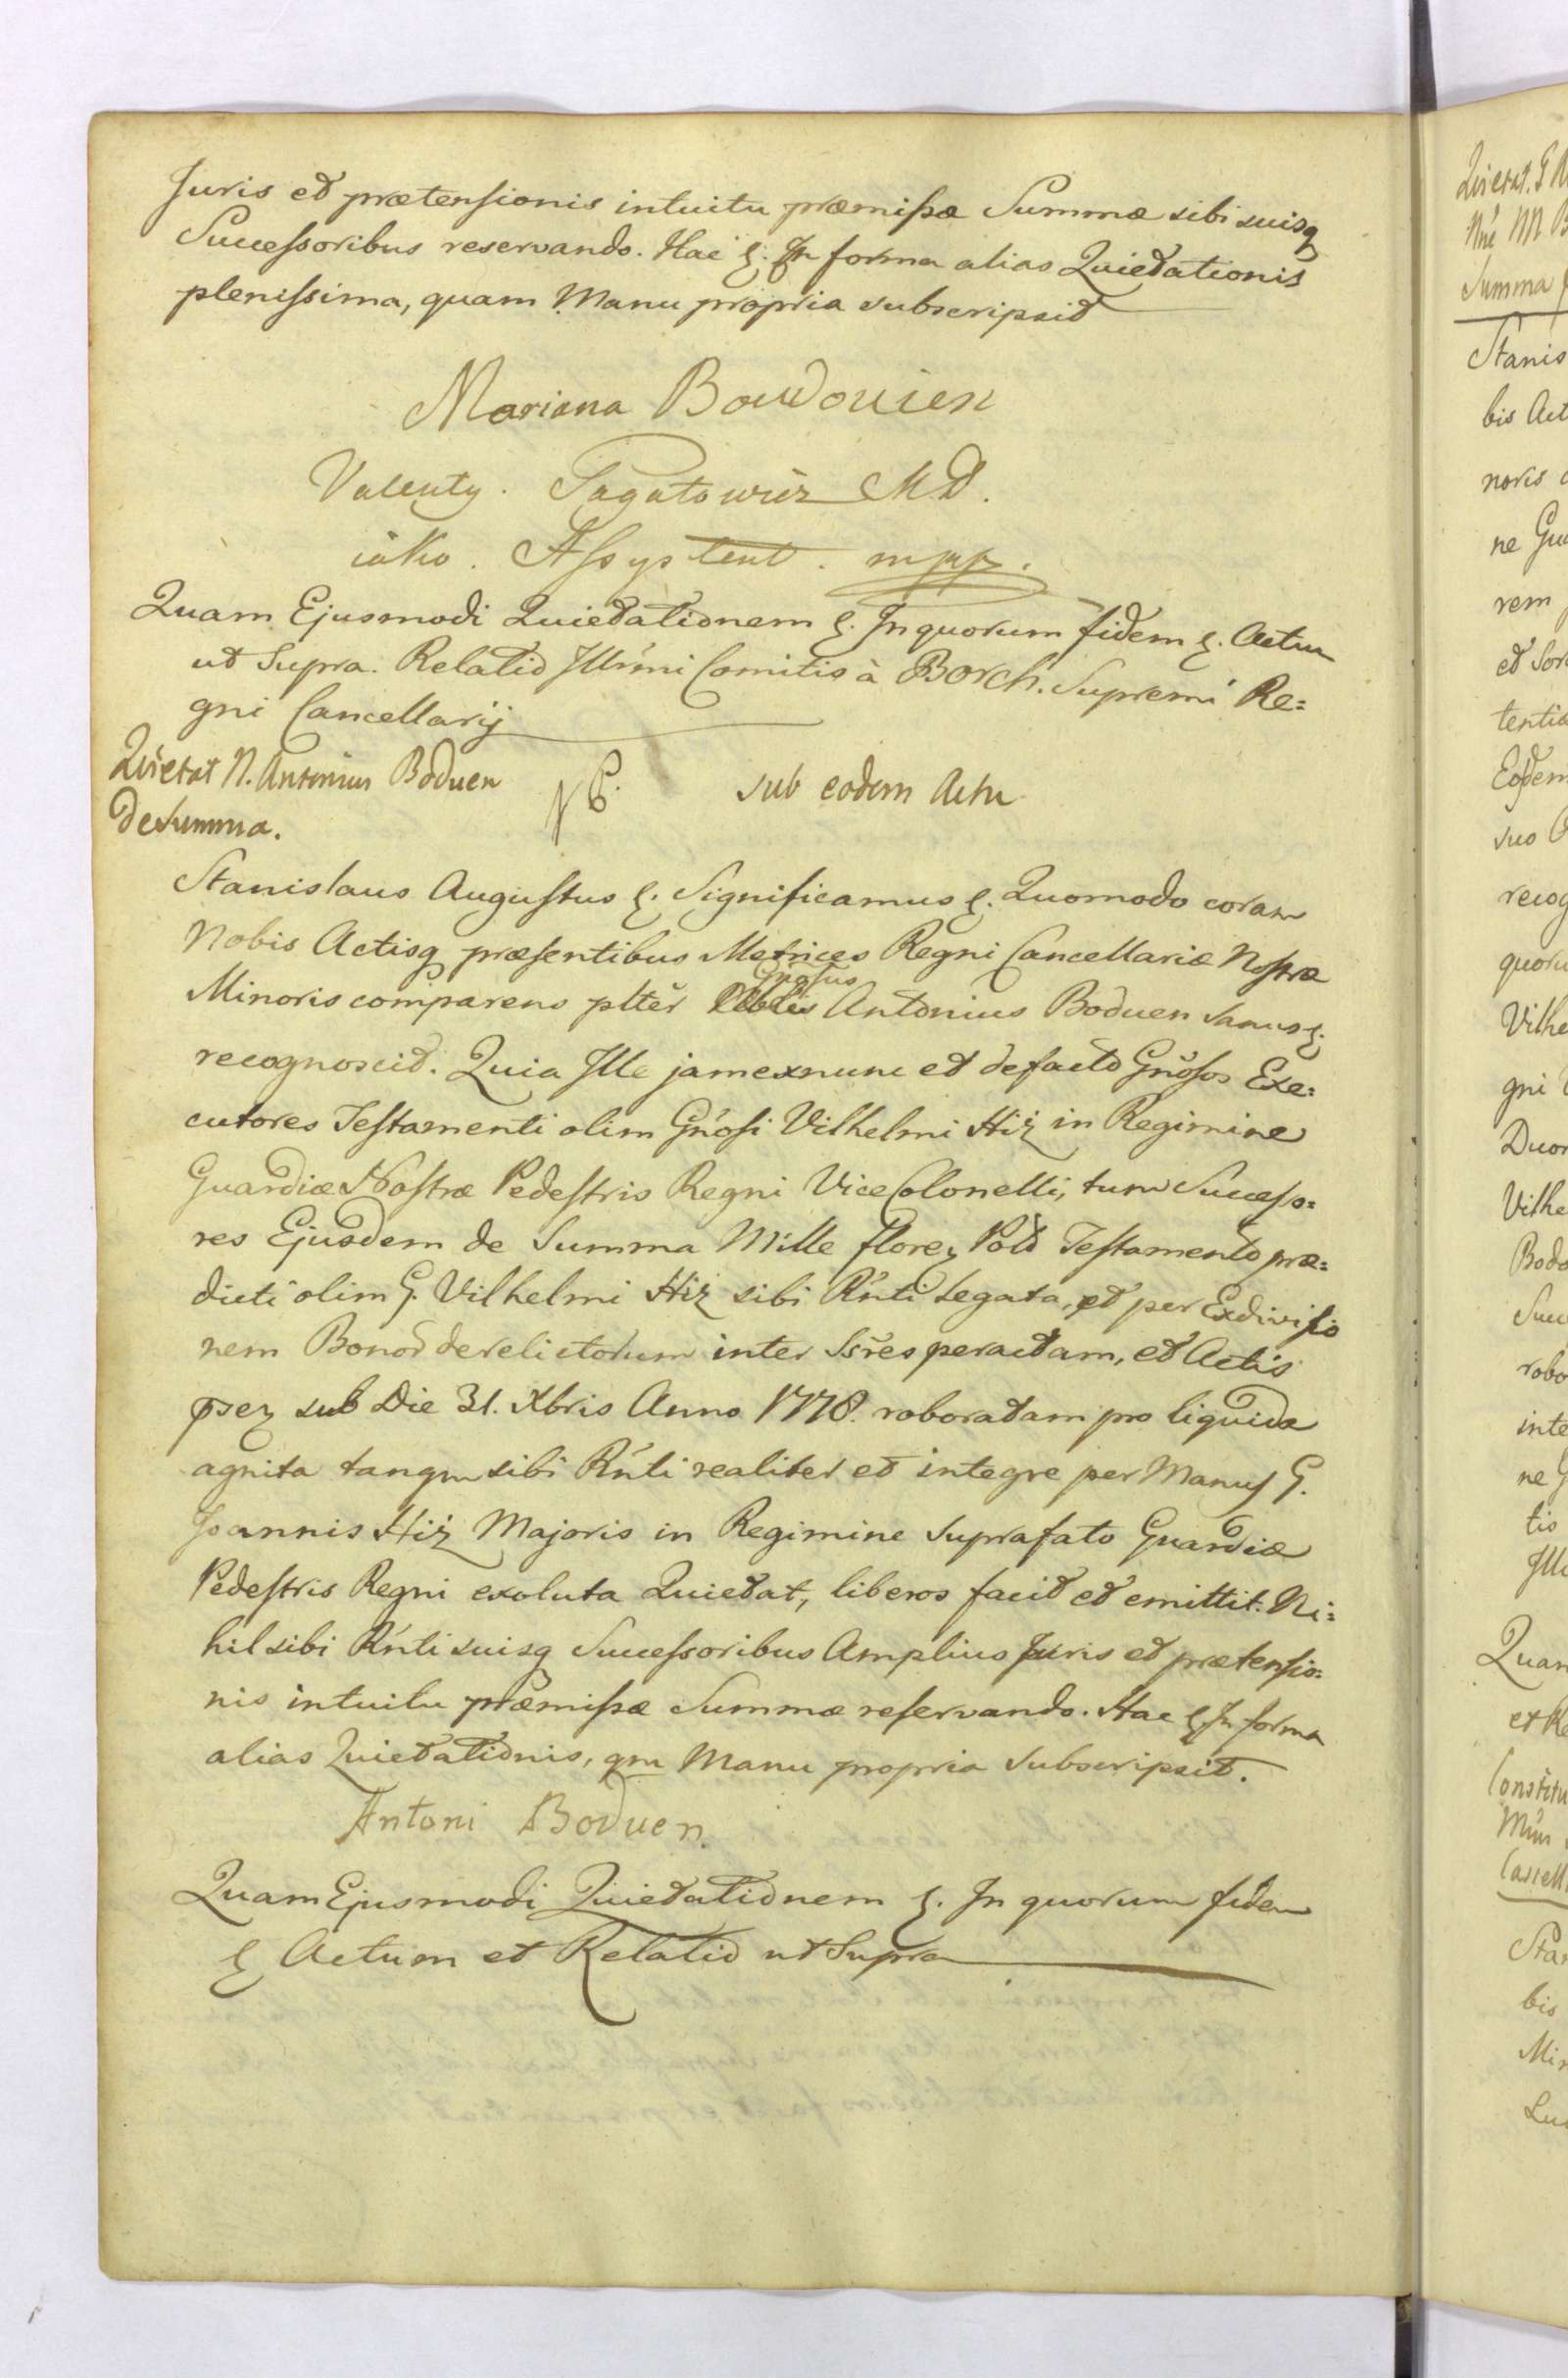 Juris et prætensionis intuitu præmissæ Summæ sibi suisq
Successoribus reservando. Hac &. In forma alias Quietationis
plenissima, quam Manu propria subscripsit
Mariana Boudouien
Valenty. Pagatowicz MD.
iako. Assystent. mpp.
Quam Ejusmodi Quietationem &. In quorum fidem &. Actum
ut Supra. Relatio Illŕmi Comitis à Borch. Supremi Re=
gni Cancellarij
Quietat N. Antonius Boduen
De Summa.
sub eodem Actu
Stanislaus Augustus &. Significamus &. Quomodo coram
Nobis Actisq præsentibus Metrices Regni Cancellariæ Nostræ
Gnosus
Minoris comparens pltěr Antonius Boduen Sanus &.
recognoscit. Quia Ille jam exnunc et defacto Gnosos Exe=
cutores Testamenti olim Gnosi Vilhelmi Hiż in Regimine
Guardiæ Nostræ Pedestris Regni Vice Colonelli, tum Successo=
res Ejusdem de Summa Mille florez Pold Testamento præ=
dicti olim G. Vilhelmi Hiż sibi Rńti Legata, et per Exdivisio
nem Bonor derelictorum inter Ssres peractam, et Actis
psez sub Die 31. Xbris Anno 1778. roboratam pro liquida
agnita tanqm sibi Rńti realiter et integre per Manus G.
Joannis Hiż Majoris in Regimine Suprafato Guardiæ
Pedestris Regni exoluta Quietat, liberos facit et emittit. Ni=
hil sibi Rńti suisq Successoribus Amplius Juris et prætensio=
nis intuitu præmissæ Summæ reservando. Hac &. In forma
alias Quietationis, qm Manu propria Subscripsit.
Antoni Boduen.
Quam Ejusmodi Quietationem &. In quorum fidem
& Actum et Relatio ut Supra
Quietat. G
Summa
Stanis
bis Act
noris
ne Gu
rem
et
tentia
Eodem
suo
recog
quoru
Vilhe
gni
Duor
Vilhe
Bodo
Succ
robo
inte
ne G
tis
Ille
Quam
et Re
Constitu
Stan
bis
Min